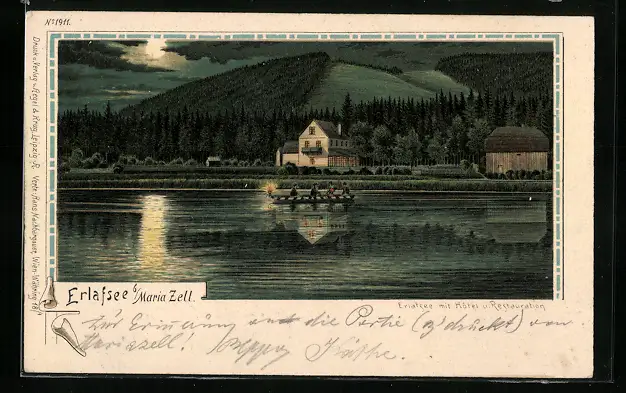 No 1911.
Druck u. Verlag v. Regel & Krug, Leipzig-R. Vertr. Hans Nachbargauer, Wien-Währing 18/1
Erlafsee b/Maria Zell.
Erlafsee mit Hôtel u. Restauration
Zur Erinnerung an die Partie (z'druckt) von
Mariazell!